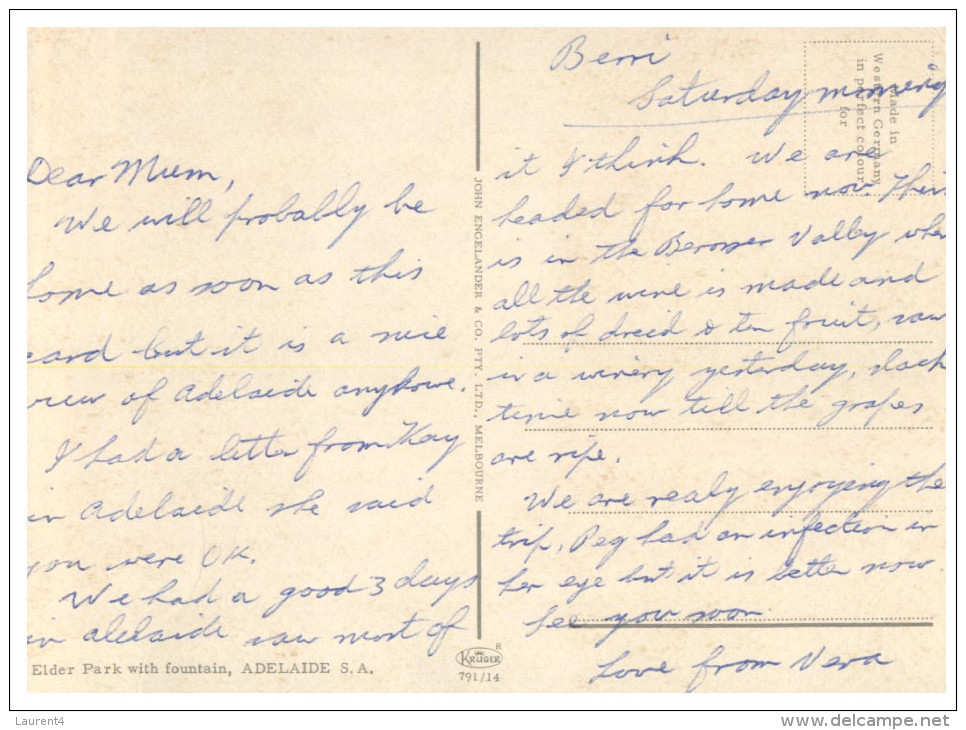 Dear Mum,
We will probably be
home as soon as this
card but it is a nice
view of Adelaide anyhowe.
I had a letter from Kay
in Adelaide she said
you were OK.
We had a good 3 days
in Alelaide saw most of
Elder Park with fountain, ADELAIDE S.A.
JOHN ENGELANDER & CO. PTY. LTD., MELBOURNE
R
KRÜGER
791/14
Berri
Saturday morning
Made in
Western Germany
in perfect colour
for
it I think. We are
headed for home now. This
is in the Berosser Valley where
all the wine is made and
lots of dreid & ten fruit, saw
in a winery yesterday, slack
time now till the grapes
are ripe.
We are realy enjoying the
trip, Peg had an infection in
her eye but it is better now.
See you soon
Love from Vera
Laurent4
www.delcampe.net